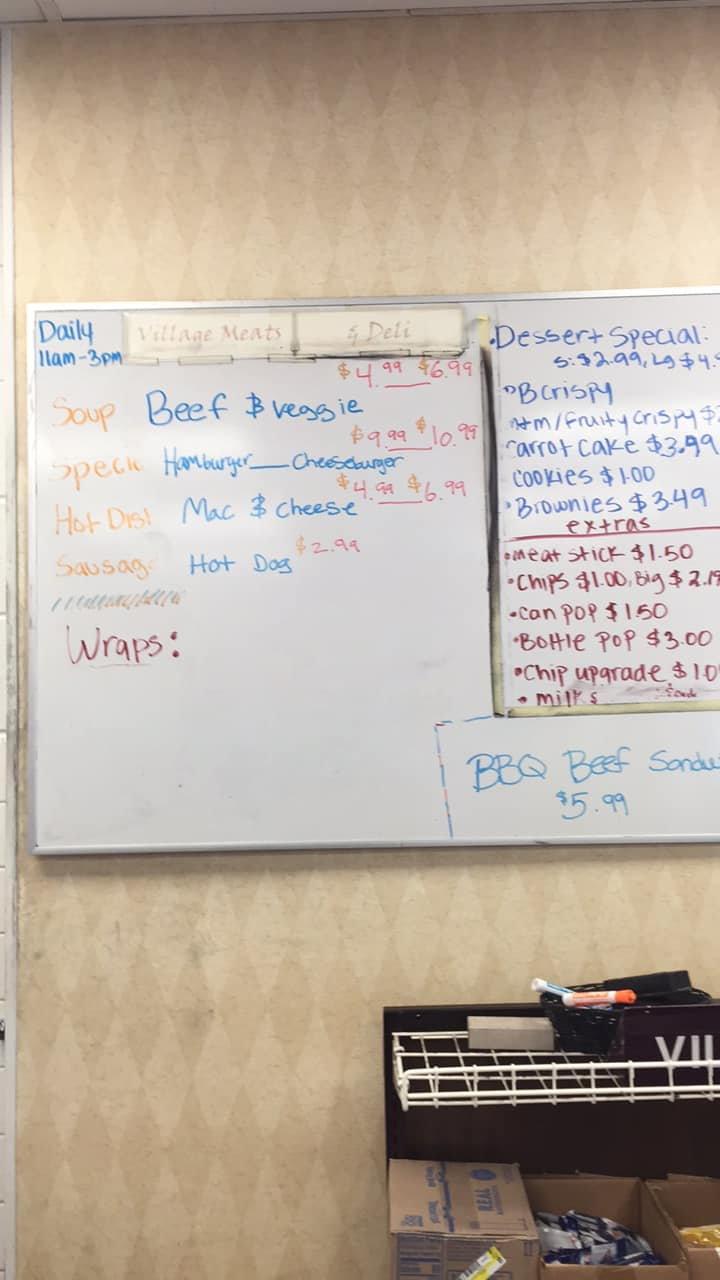 Daily
11am-3pm
Village Meats & Deli
$4.99 $6.99
Soup Beef & veggie
$9.99 $10.99
Specia Hamburger Cheeseburger
$4.99 $6.99
Hot Dish Mac & cheese
$2.99
Sausage Hot Dog
Wraps:
•Dessert Special:
S:$2.99, Lg $4.
•B crispy
/fruity crispy $
carrot cake $3.99
cookies $1.00
•Brownies $3.49
extras
•meat stick $1.50
•Chips $1.00, Big $2.19
•can pop $1.50
•Bottle pop $3.00
•Chip upgrade $1.0
•milks
BBQ Beef Sandw
$5.99
VIL
REAL